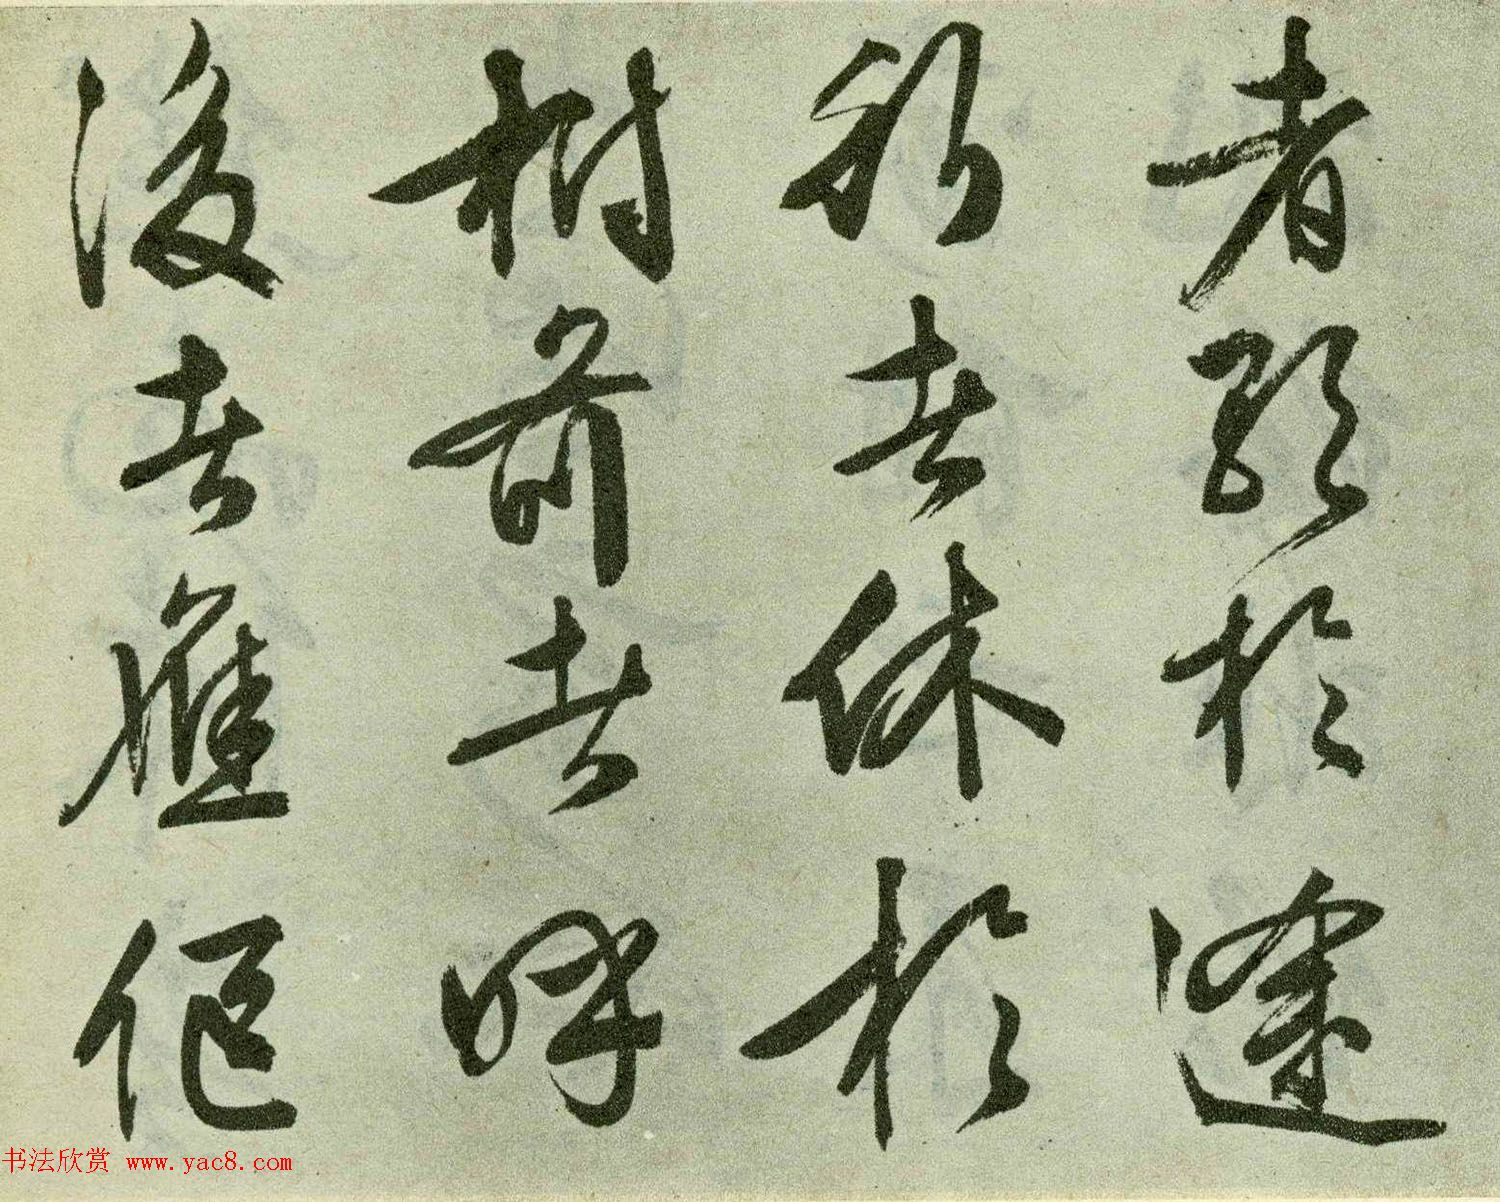 者歌於塗
行者休於
樹前者呼
後者應傴
书法欣赏 www.yac8.com